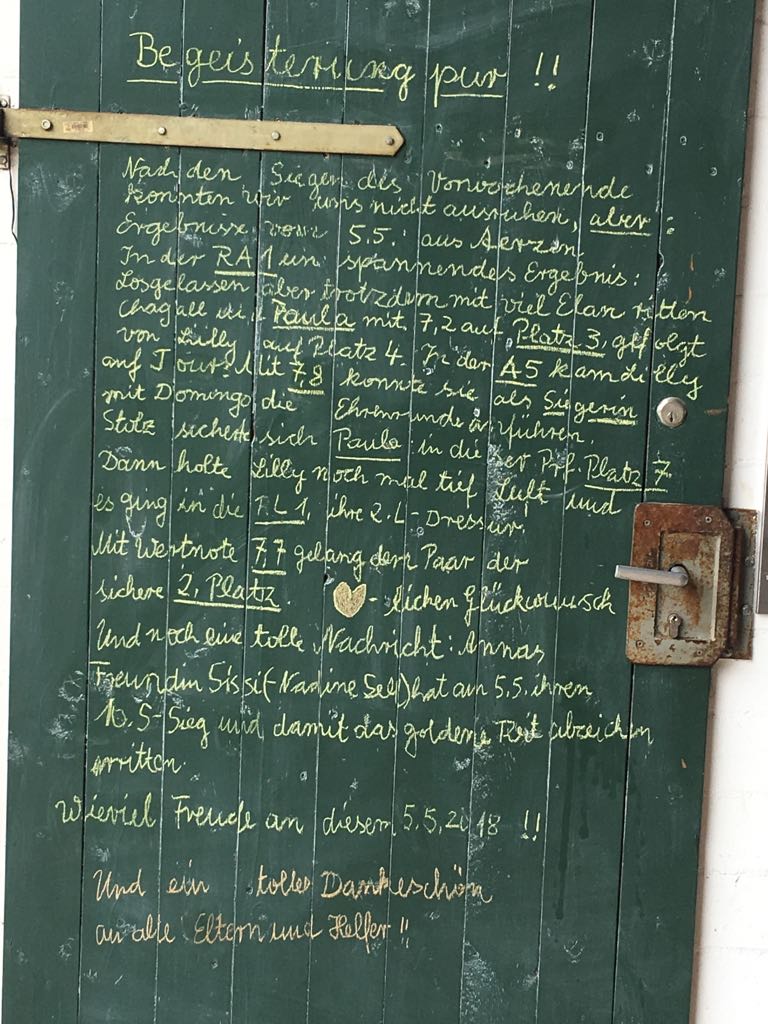 Begeisterung pur !!
Nach den Siegen des Vorwochenende
konnten wir uns nicht ausruhen, aber:
Ergebnisse vom 5.5.: aus Aerzen.
In der RA1 ein spannendes Ergebnis:
Losgelassen aber trotzdem mit viel Elan ritten
Chagall und Paula mit 7,2 auf Platz 3, gefolgt
von Lilly auf Platz 4. In der A5 kam Lilly
auf Tour! Mit 7,8 konnte sie als Siegerin
mit Domingo die Ehrenrunde führen.
Stolz sicherte sich Paula in dieser Prf. Platz 7.
Dann holte Lilly noch mal tief Luft und
es ging in die RL1, ihre 2. L-Dressur.
Mit Wertnote 7,7 gelang dem Paar der
sichere 2. Platz. - lichen Glückwunsch
Und noch eine tolle Nachricht: Annas
Freundin Sissi (- Nadine) hat am 5.5. ihren
10. S-Sieg und damit das goldene Reitabzeichen
erritten.
Wieviel Freude an diesem 5.5.2018 !!
Und ein tolles Dankeschön
an alle Eltern und Helfer !!